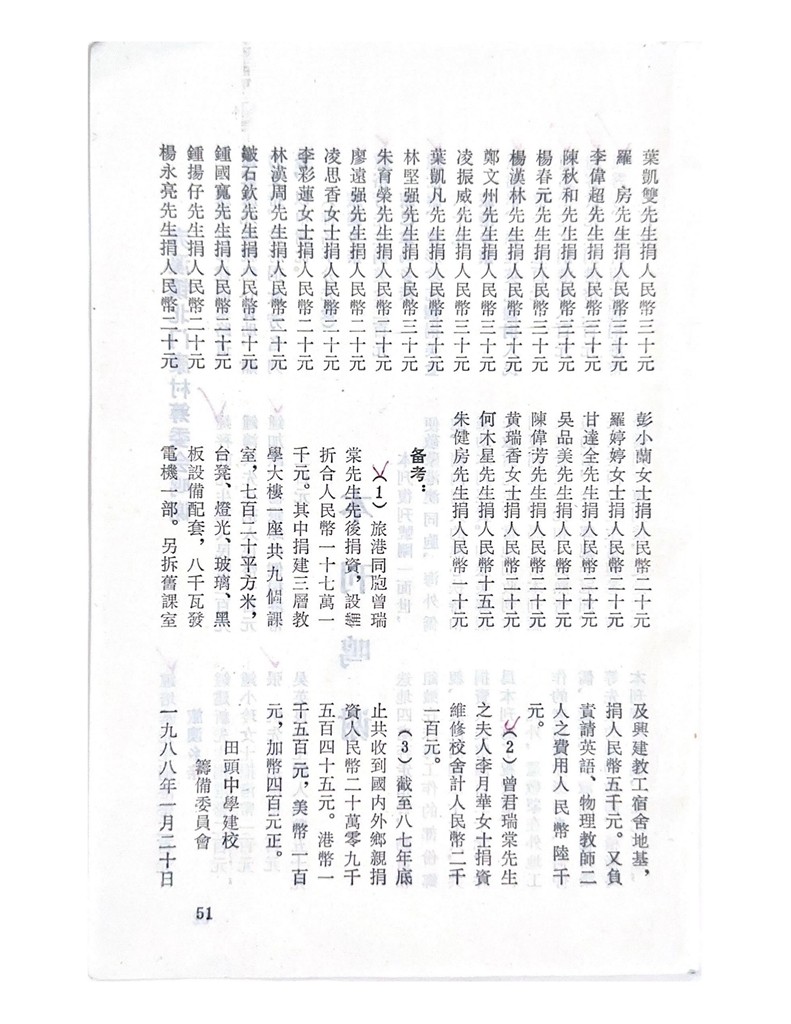 葉凱雙先生捐人民幣三十元
羅　房先生捐人民幣三十元
李偉超先生捐人民幣三十元
陳秋和先生捐人民幣三十元
楊春元先生捐人民幣三十元
楊漢林先生捐人民幣三十元
鄭文州先生捐人民幣三十元
凌振威先生捐人民幣三十元
葉凱凡先生捐人民幣三十元
林堅强先生捐人民幣三十元
朱育榮先生捐人民幣二十元
廖遠强先生捐人民幣二十元
凌思香女士捐人民幣二十元
李彩蓮女士捐人民幣二十元
林漢周先生捐人民幣二十元
石欽先生捐人民幣二十元
鍾國寬先生捐人民幣二十元
鍾揚仔先生捐人民幣二十元
楊永亮先生捐人民幣二十元
彭小蘭女士捐人民幣二十元
羅婷婷女士捐人民幣二十元
甘達全先生捐人民幣二十元
吳品美先生捐人民幣二十元
陳偉芳先生捐人民幣二十元
黃瑞香女士捐人民幣二十元
何木星先生捐人民幣十五元
朱健房先生捐人民幣一十元
备考：
（1）旅港同胞曾瑞
棠先生先後捐資，設
折合人民幣一十七萬一
千元。其中捐建三層教
學大樓一座共九個課
室，七百二十平方米，
台凳、燈光、玻璃、黑
板設備配套，八千瓦發
電機一部。另拆舊課室
及興建教工宿舍地基，
捐人民幣五千元。又負
責請英語、物理教師二
人之費用人民幣陸千
元。
（2）曾君瑞棠先生
之夫人李月華女士捐資
維修校舍計人民幣二千
一百元。
（3）截至八七年底
止共收到國内外鄉親捐
資人民幣二十萬零九千
五百四十五元。港幣一
千五百元，美幣一百
元，加幣四百元正。
田頭中學建校
籌備委員會
一九八八年一月二十日
51